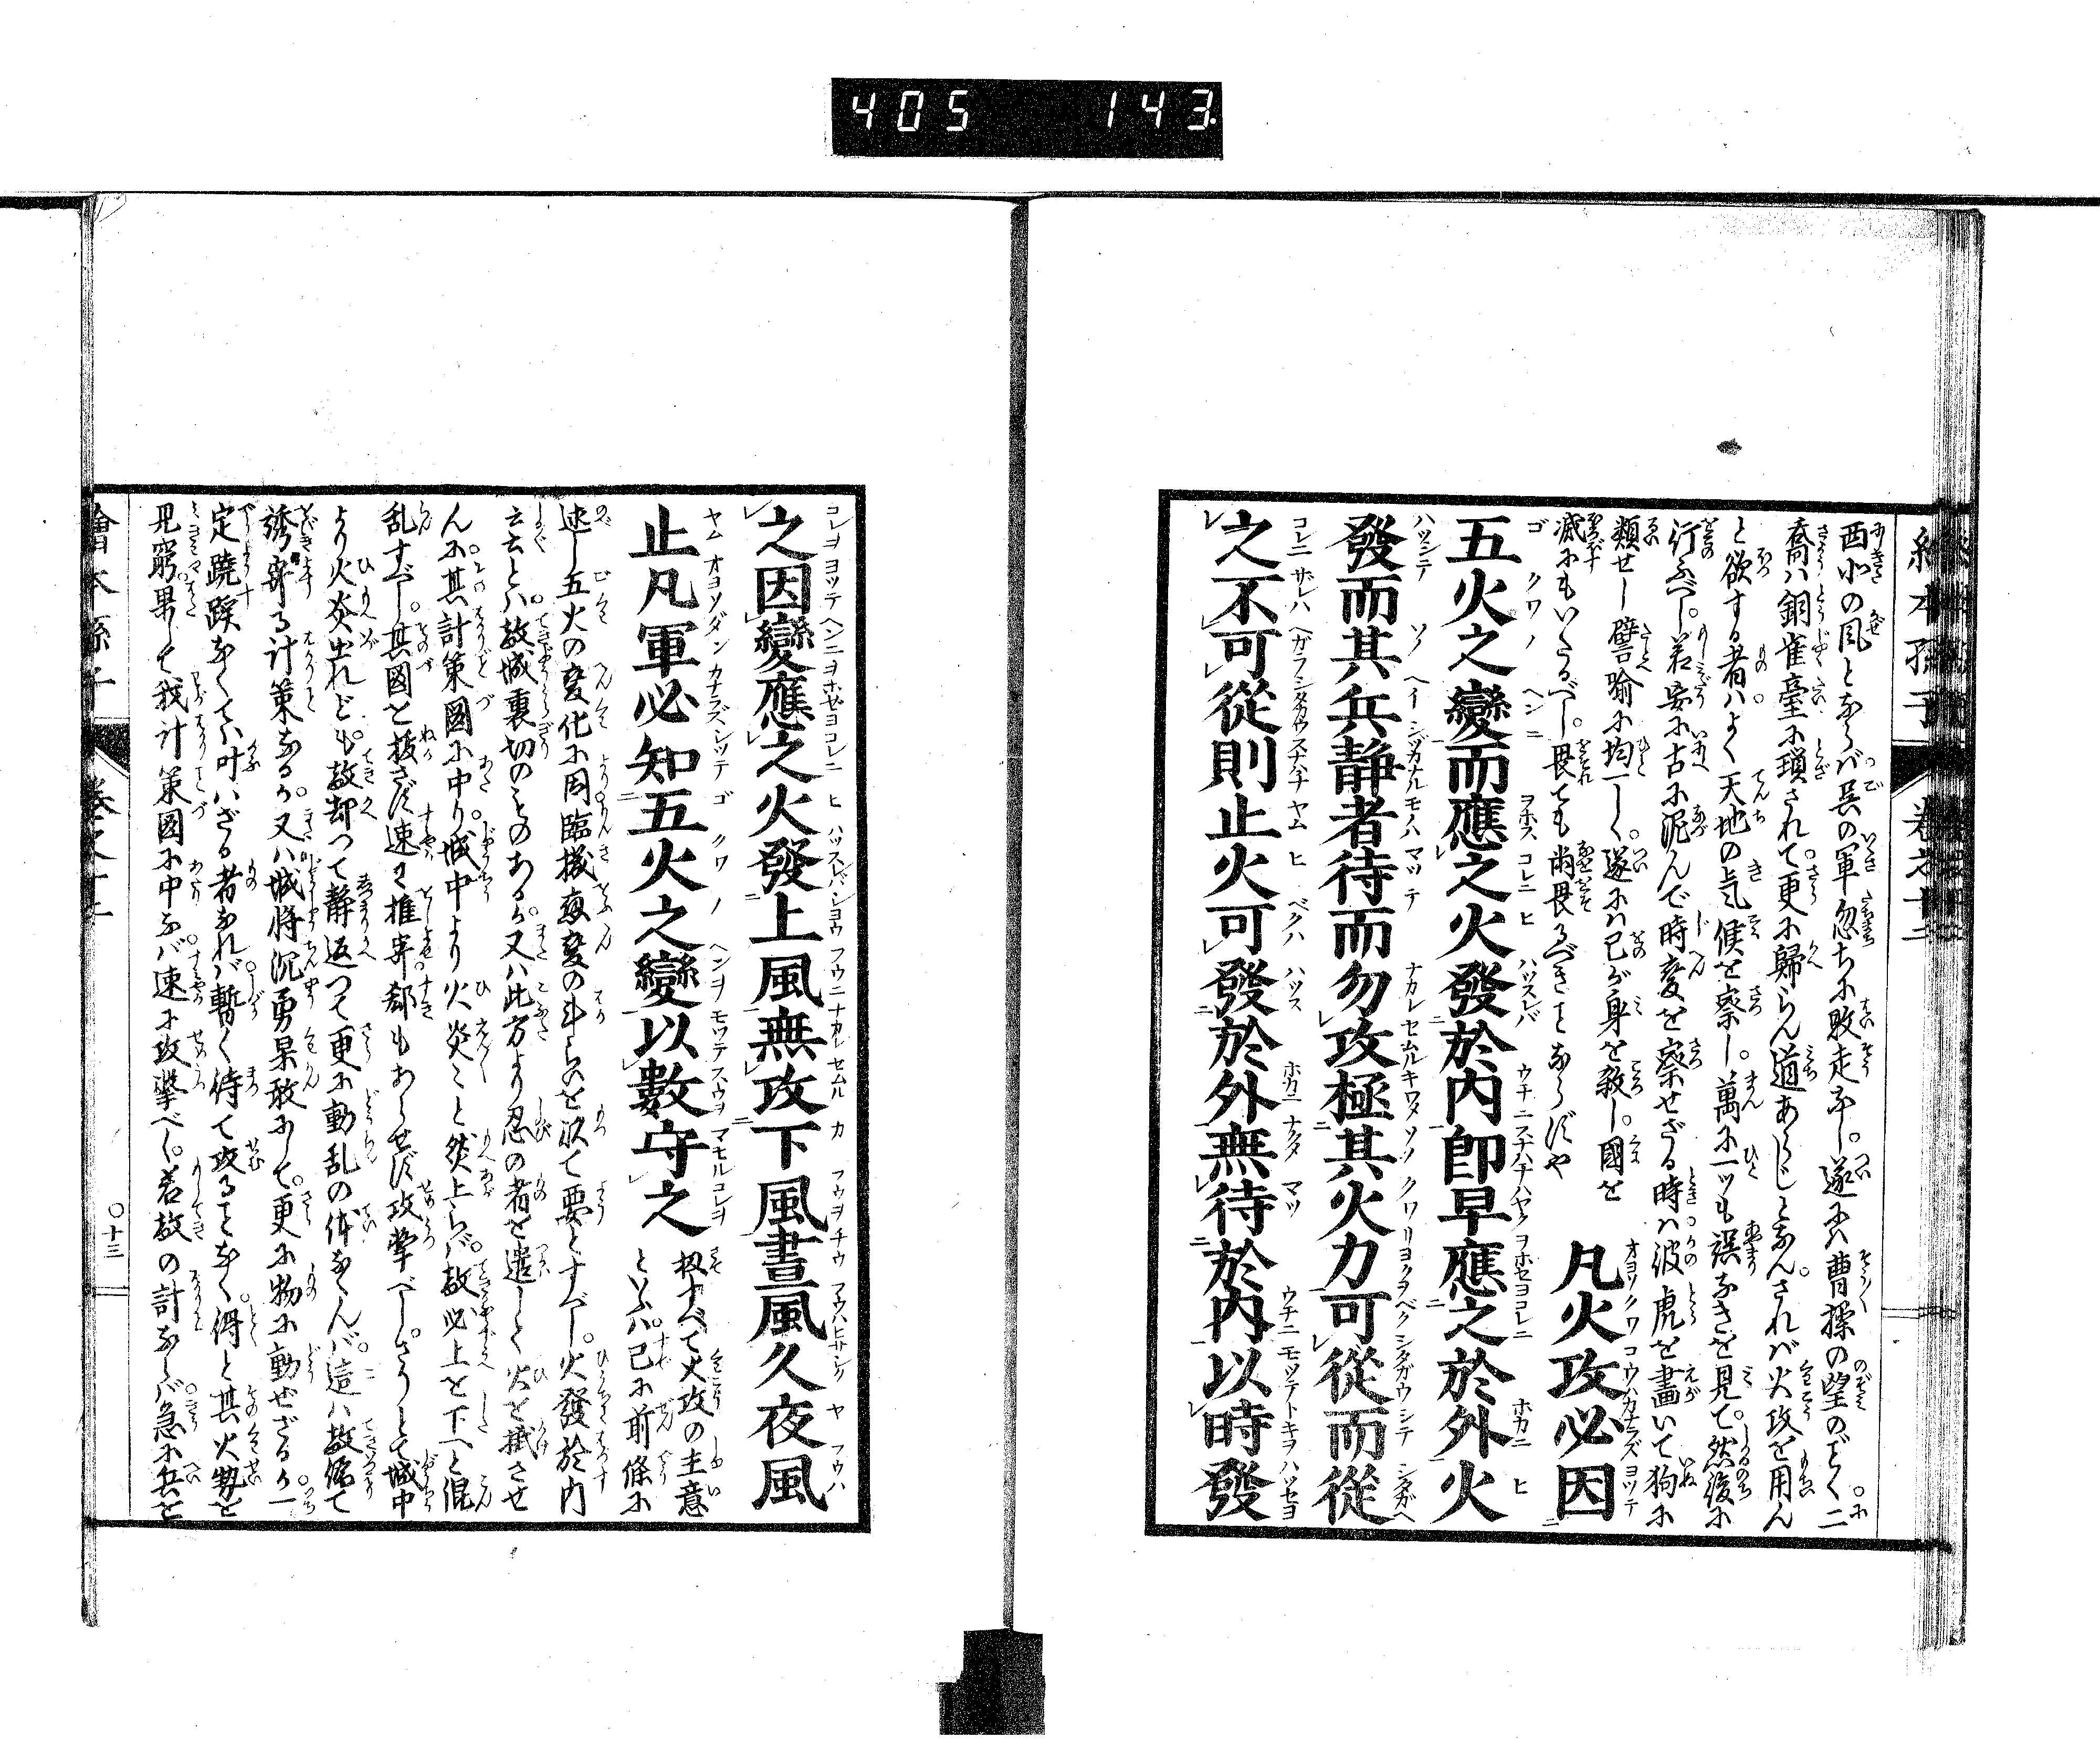 405 143
繪本孫子 卷之十二
西北の風とならバ呉の軍忽ちに敗走なし遂にハ曹操の望のごく二
喬ハ銅雀臺に瑣されて更に歸らん道あらじとなんされバ火攻を用ん
と欲する者ハよく天地の気候を察し萬に一ツも誤なきを見て然後に
行ふべし若妄に古に泥んで時変を察せざる時ハ彼虎を畫いて狗に
類せし譬喩に均しく遂にハ已が身を殺し國を
滅にもいたるべし畏ても尚畏るべきことならずや
凡火攻必因
五火之變而應之火發於内卽早應之於外火
發而其兵静者待而勿攻極其火力可從而從
之不可從則止火可發於外無待於内以時發
之因變應之火發上風無攻下風晝風久夜風
止凡軍必知五火之變以數守之
扨すべて火攻の主意
といふハ已に前條に
述し五火の変化に因臨機應変の斗らひを以て要とすべし火發於内
云云とハ敵城裏切のものあるか又ハ此方より忍の者を遣して火を掀させ
んに其計策圖に中り城中より火炎々と燃上らバ敵必上を下へと混
乱すべし其圖を抜さず速に推寄都もあらせず攻撃べしさうとて城中
より火炎出れども敵却つて静返つて更に動乱の体なくんバ這ハ敵偽て
誘寄る計策なるか又ハ城将沉勇果敢にして更に物に動ぜざるか一
定蹺蹊なくてハ叶ハざる者なれバ暫く待て攻ることなく得と其火勢を
見窮果して我計策圖に中らバ速に攻撃べし若敵の計ならバ急に兵を
繪本孫子 卷之十二 〇十三